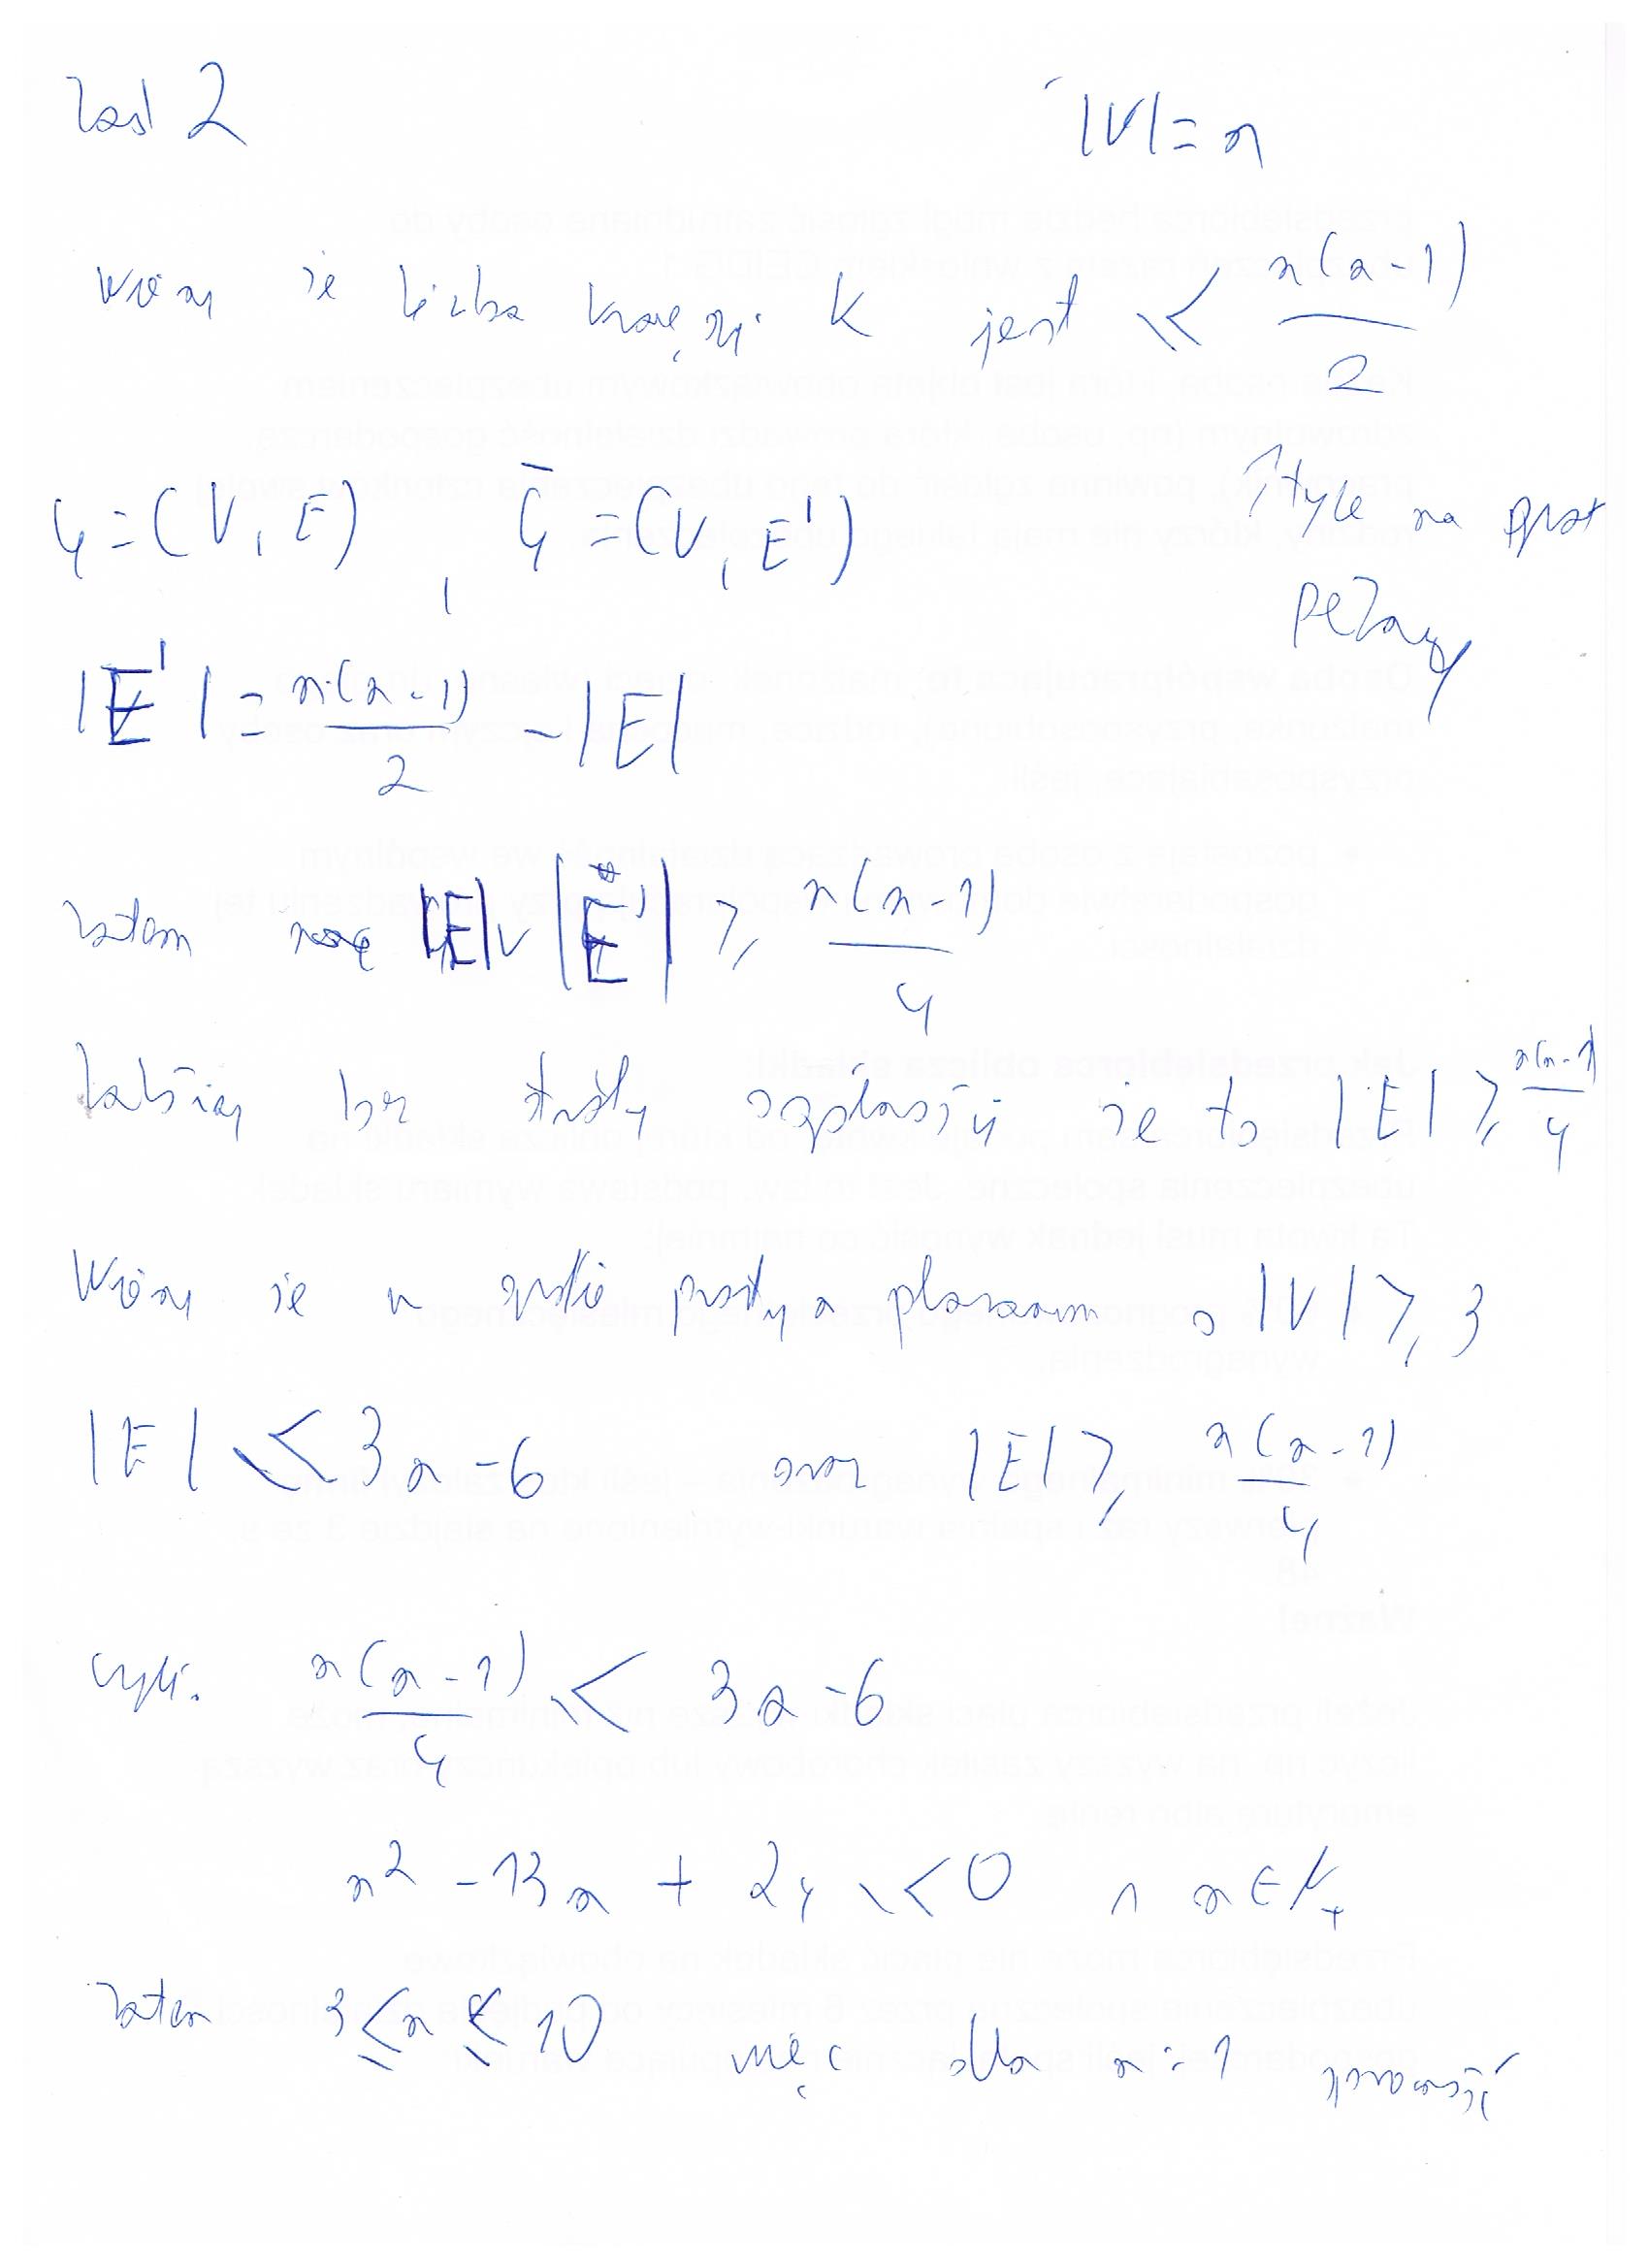 Zad 2
|V| = n
Wiemy że liczba krawędzi K jest ≤ n(n-1)/2
↑ tyle ma graf pełny
G = (V, E), Ḡ = (V, E')
|E'| = n(n-1)/2 - |E|
Zatem |E| v |E'| ≥ n(n-1)/4
Załóżmy bez straty ogólności że to |E| ≥ n(n-1)/4
Wiemy że w grafie prostym planarnym o |V| ≥ 3
|E| ≤ 3n-6 oraz |E| ≥ n(n-1)/4
czyli. n(n-1)/4 ≤ 3n-6
n² - 13n + 24 ≤ 0 ∧ n ∈ N₊
Zatem 3 ≤ n ≤ 10 więc dla n = 1